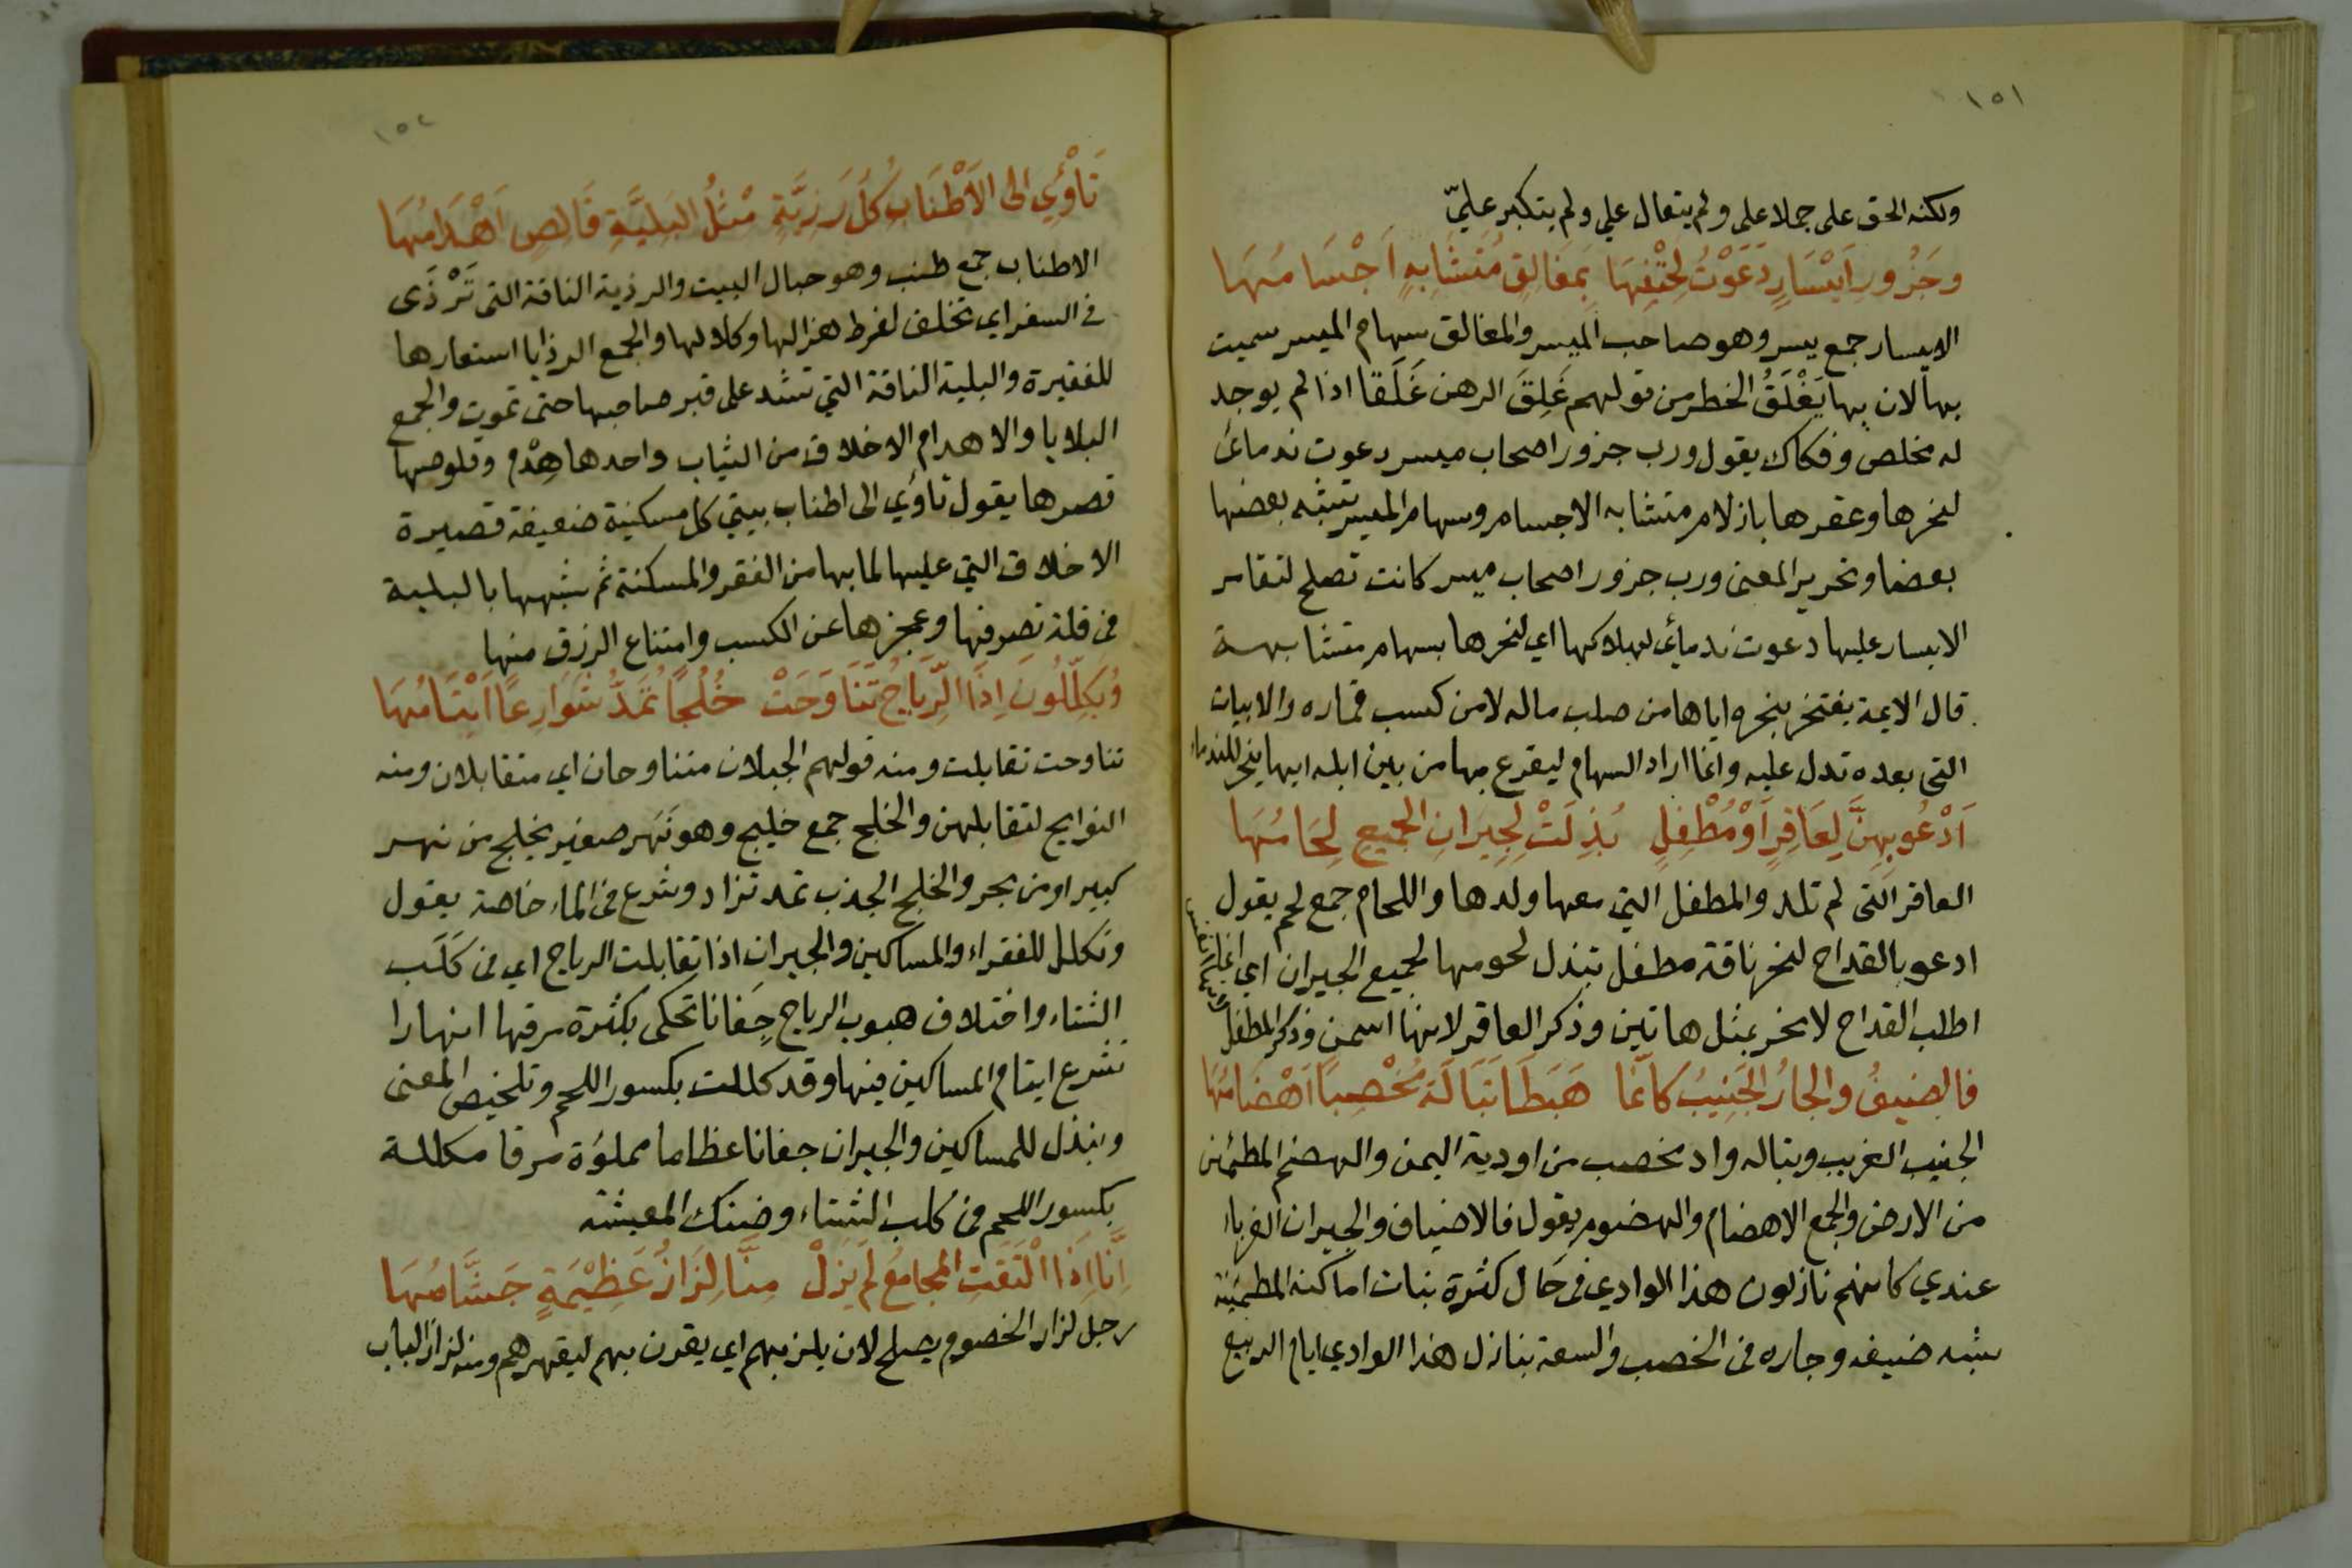 ١٥١
ولكنه الحق على جملا على ولم يتعال علي ولم يتكبر عليّ
وجَزُورِ اَيْسَارٍ دَعَوْتُ لِحَتْفِهَا بِمَغَالِقٍ مُتَشَابِهٍ اَجْسَامُهَا
الايسار جمع يسر وهو صاحب الميسر والمغالق سهام الميسر سميت
بها لان بها يَغْلَقُ الخطر من قولهم غَلِقَ الرهن غَلَقًا اذا لم يوجد
له مخلص وفكاك يقول ورب جزور اصحاب ميسر دعوت ندمائ
لنحرها وعقرها بازلام متشابه الاجسام وسهام الميسر تشبه بعضها
بعضا وتحرير المعنى ورب جزور اصحاب ميسر كانت تصلح لتقامر
الايسار عليها دعوت ندمائ لهلاكها اي لنحرها بسهام متشابهة
قال الايمة يفتخر بنحره اياها من صلب ماله لا من كسب قماره والابيات
التى بعده تدل عليه وانما اراد السهام ليقرع بها من بين ابله ايها ينحر للندماء
اَدْعُو بِهِنَّ لِعَاقِرٍ اَوْ مُطْفِلٍ بُذِلَتْ لِجِيرَانِ الجَمِيعِ لِحَامُهَا
العاقر التى لم تلد والمطفل التي معها ولدها واللحام جمع لحم يقول
ادعو بالقداح لنحر ناقة مطفل تبذل لحومها لجميع الجيران اي انما
اطلب القداح لانحر بمثل هاتين وذكر العاقر لانها اسمن وذكر المطفل
لانها انفس
فالضيفُ والجارُ الجَنِيبُ كانّما هَبَطَا تَبَالَةَ مُخْصِبًا اَهْضَامُهَا
الجنيب الغريب وتباله واد مخصب من اودية اليمن والهضم المطمئن
من الارض والجمع الاهضام والهضوم يقول فالاضياف والجيران الغرباء
عندي كانهم نازلون هذا الوادي فى حَال كثرة نبات اماكنه المطمئنة
شبه ضيفه وجاره فى الخصب والسعة بنازل هذا الوادي ايام الربيع
١٥٢
تَأْوِي الى الاَطْنَابِ كُلُّ رَزِيَّةٍ مْثلُ البَلِيَّةِ قَالِصٍ اَهْدَامُهَا
الاطناب جمع طنب وهو حبال البيت والرذية الناقة التى تَرْذَى
في السفر اي تخلف لفرط هزالها وكلالها والجمع الرذايا استعارها
للفقيرة والبلية الناقة التي تشد على قبر صاحبها حتى تموت والجمع
البلايا والاهدام الاخلاق من الثياب واحدها هِدْم وقلوصها
قصرها يقول تاوي الى اطناب بيتي كل مسكنية ضعيفة قصيرة
الاخلاق التي عليها لما بها من الفقر والمسكنة ثم شبهها بالبلية
فى قلة تصرفها وعجزها عن الكسب وامتناع الرزق منها
وُيكَلِّلُونَ اِذَا الرِّيَاحُ تَنَاوَحَتْ خُلُجًا تُمَدُّ شَوَارِعًا اَيْتَامُهَا
تناوحت تقابلت ومنه قولهم الجبلان متناوحان اي متقابلان ومنه
النوايح لتقابلهن والخلج جمع خليج وهو نَهر صغير يخلج من نهر
كبير او من بحر والخلج الجذب تمد تزاد وشرع فى الماء خاضه يقول
ونكلل للفقراء والمساكين والجيران اذا تقابلت الرياح اي فى كَلَب
الشتاء واختلاف هبوب الرياح جِفانا تحكى بكثرة مرقها انهارا
تشرع ايتام المساكين فيها وقد كللت بكسور اللحم وتلخيص المعنى
ونبذل للمساكين والجيران جفانا عظاما مملوءة مرقا مكللة
بكسور اللحم فى كلب الشتاء وضنك المعيشة
اِنَّا اِذَا الْتَقَتِ المجامعُ لَم يَزَلْ مِنَّا لِزَازُ عَظِيْمَةٍ جَشَّامُهَا
رجل لزاز الخصوم يصلح لان يلز بهم اي يقرن بهم ليقهرهم ومنه لزاز الباب